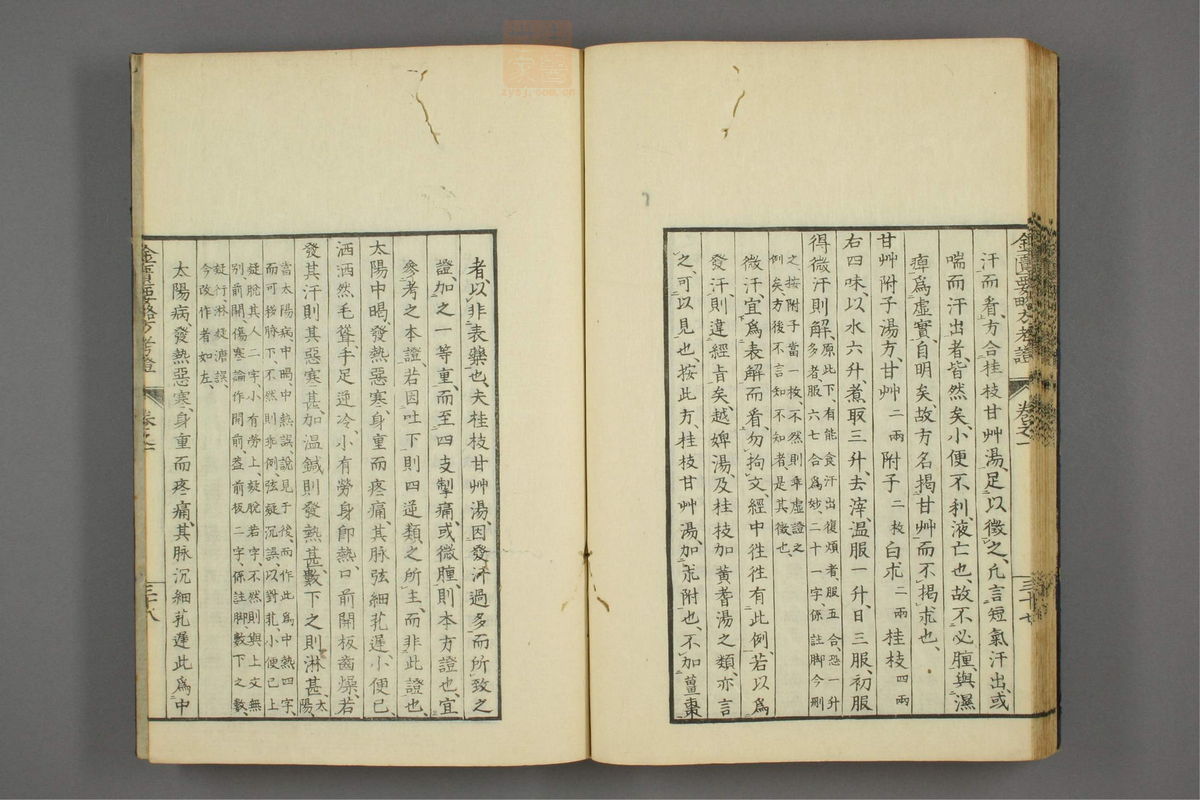 金匱要略方考證 卷之一 三十七
汗而看、方合桂枝甘艸湯、足以徵之、凡言短氣汗出、或
喘而汗出者、皆然矣、小便不利、液亡也、故不必腫、與濕
痺爲虛實、自明矣、故方名揭甘艸、而不揭朮也、
甘艸附子湯方、甘艸二兩附子二枚白朮二兩桂枝四兩
右四味以水六升、煮取三升、去滓、温服一升、日三服、初服
得微汗則解、原此下、有能食汗出復煩者、服五合、恐一升
多者、服六七合爲妙、二十一字、係註脚今刪
之、按附子當一枚、不然則乖虛證之
例矣、方後不言如不知者、是其徵也、
微汗、宜爲表解而看、勿拘文、經中徃徃有此例、若以爲
發汗、則違經旨矣、越婢湯、及桂枝加黃耆湯之類、亦言
之、可以見也、按此方、桂枝甘艸湯、加朮附也、不加薑棗
者、以非表藥也、夫桂枝甘艸湯、因發汗過多而所致之
證、加之一等重、而至四支掣痛、或微腫、則本方證也、宜
參考之本證、若因吐下、則四逆類之所主、而非此證也、
太陽中暍、發熱惡寒、身重而疼痛、其脉弦細芤遲、小便已、
洒洒然毛聳、手足逆冷、小有勞身卽熱、口前開板齒燥、若
發其汗則其惡寒甚、加温鍼則發熱甚、數下之則淋甚、太
陽、
當太陽病、中暍、中熱誤、說見于後、而作此爲中熱四字、
而可揩脉下、不然則非例、弦疑沉誤、以對芤、小便已上
疑脫其人二字、小有勞上、疑脫若字、不然則與上文無
別、前開傷寒論作開前、葢前板二字、係註脚、數下之數、
疑行、淋疑溏誤、
今改作者如左、
太陽病、發熱惡寒、身重而疼痛、其脉沉細芤遲、此爲中
金匱要略方考證 卷之一 三十八